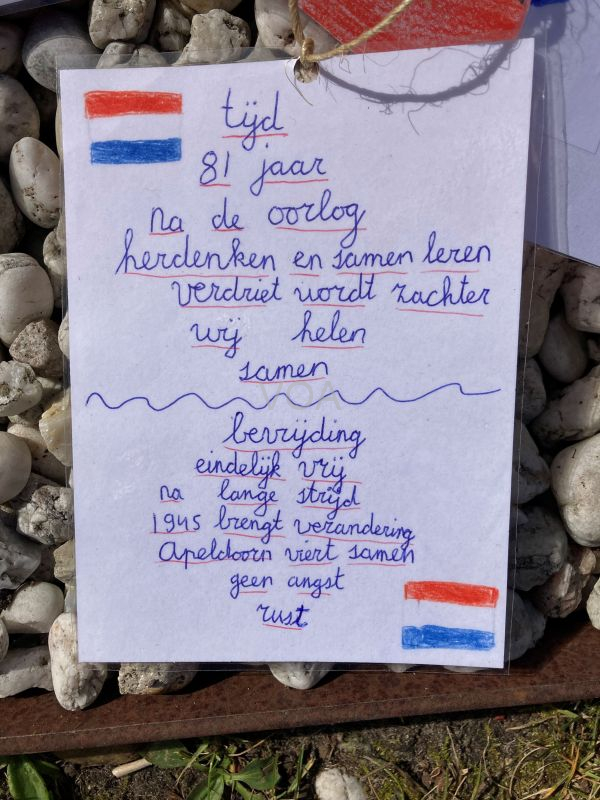 tijd
81 jaar
na de oorlog
herdenken en samen leren
verdriet wordt zachter
wij helen
samen
bevrijding
eindelijk vrij
na lange strijd
1945 brengt verandering
Apeldoorn viert samen
geen angst
rust